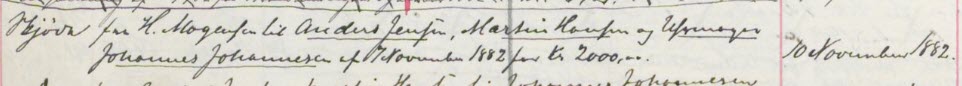 Skjøde fra H. Mogensen til Anders Jensen, Martin Hansen og Uhrmager
Johannes Johannesen af 7 November 1882 for Kr 2000,-. 10 November 1882.